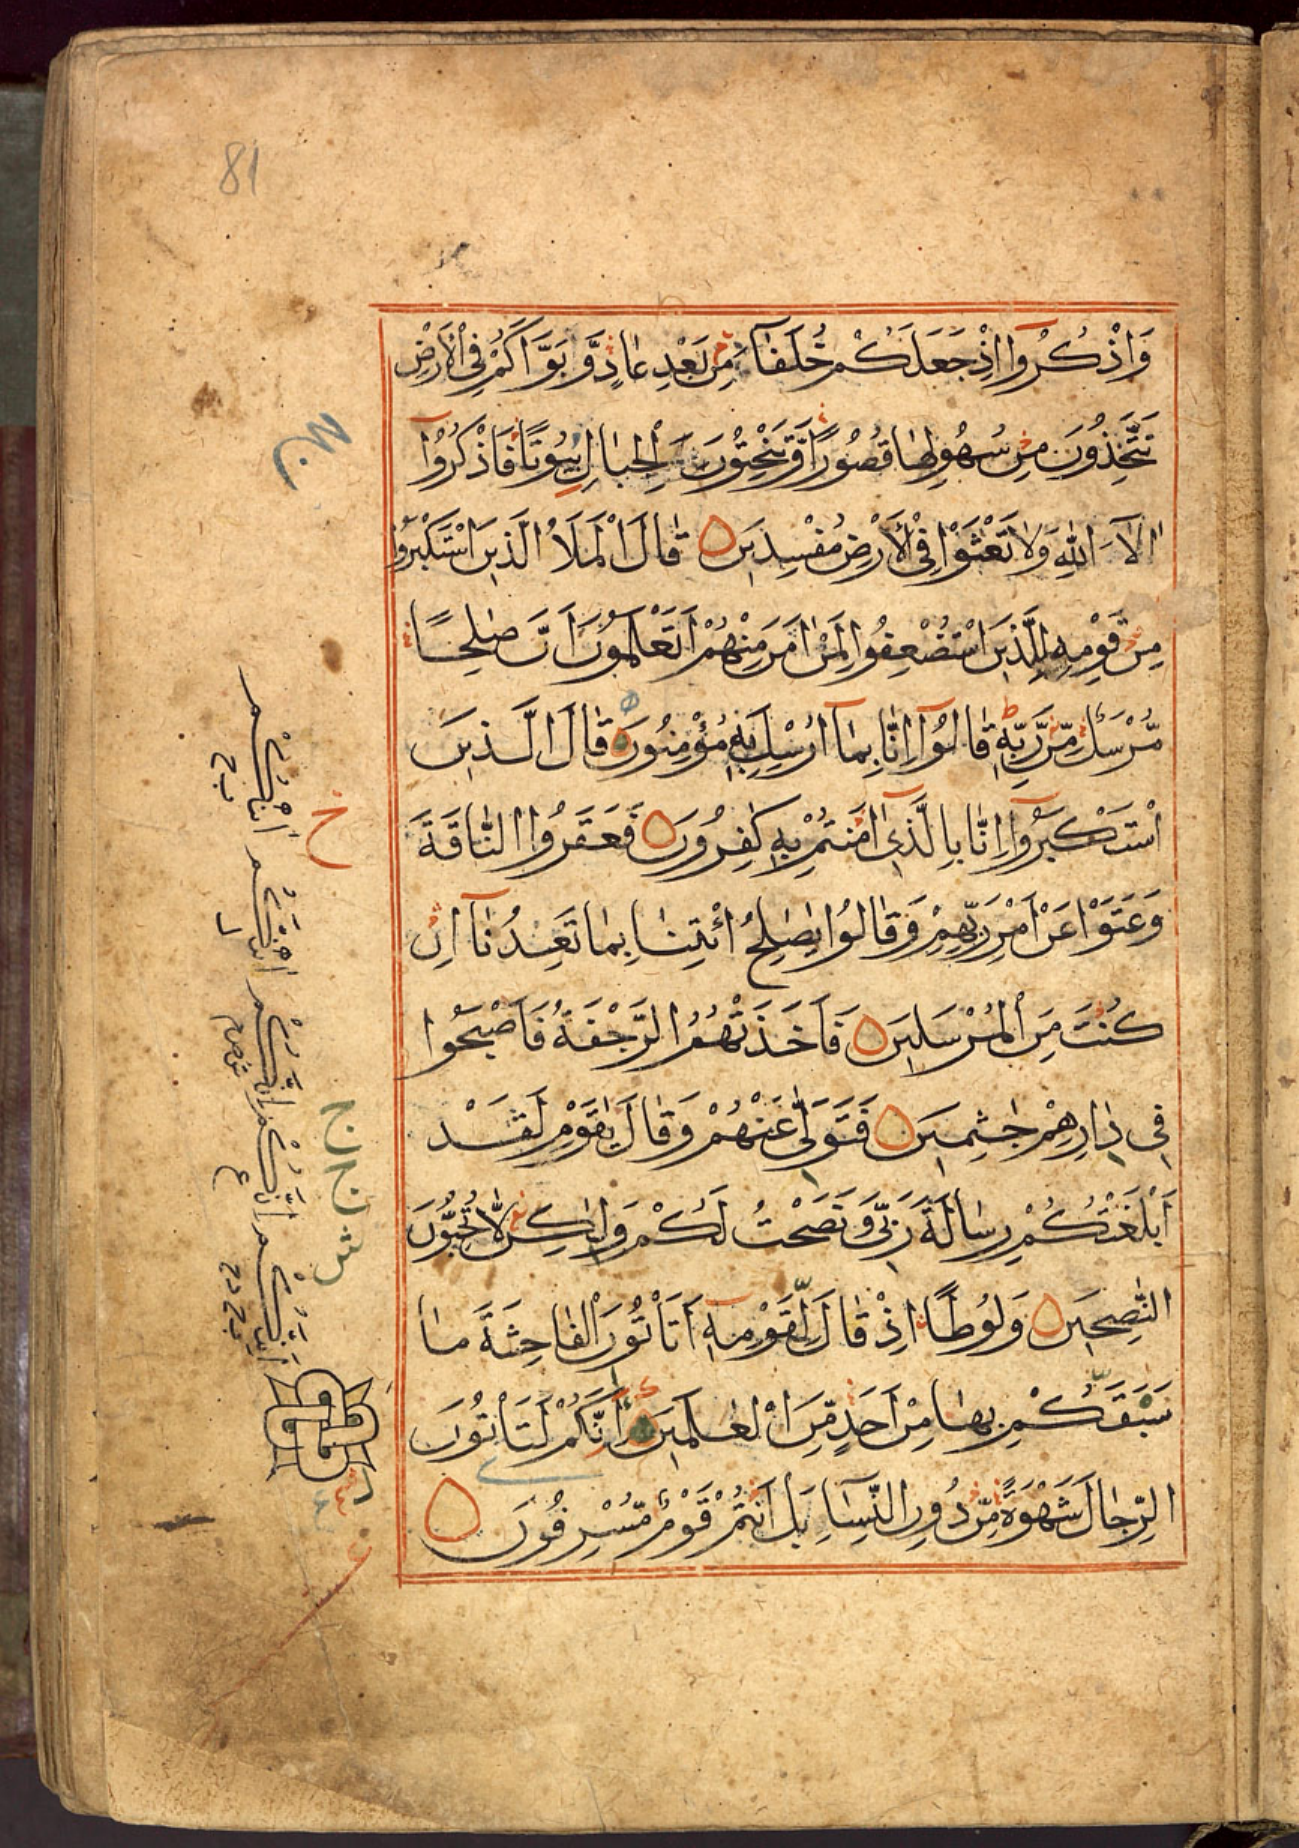 81
وَاذْكُرُوا اِذْ جَعَلَكُمْ خُلَفَآءَ مِنْ بَعْدِ عَادٍ وَّ بَوَّاَكُمْ فِى الْاَرْضِ
تَتَّخِذُونَ مِنْ سُهُولِهَا قُصُوْرًا وَّ تَنْحِتُوْنَ الْجِبَالَ بُيُوْتًا فَاذْكُرُوْٓا
اٰلَآءَ اللّٰهِ وَلَا تَعْثَوْا فِى الْاَرْضِ مُفْسِدِيْنَ قَالَ الْمَلَاُ الَّذِيْنَ اسْتَكْبَرُوْا
مِنْ قَوْمِهٖ لِلَّذِيْنَ اسْتُضْعِفُوا لِمَنْ اٰمَنَ مِنْهُمْ اَتَعْلَمُوْنَ اَنَّ صٰلِحًا
مُّرْسَلٌ مِّنْ رَّبِّهٖ قَالُوْٓا اِنَّا بِمَآ اُرْسِلَ بِهٖ مُؤْمِنُوْنَ قَالَ الَّذِيْنَ
اسْتَكْبَرُوْٓا اِنَّا بِالَّذِيْٓ اٰمَنْتُمْ بِهٖ كٰفِرُوْنَ فَعَقَرُوا النَّاقَةَ
وَعَتَوْا عَنْ اَمْرِ رَبِّهِمْ وَقَالُوْا يٰصٰلِحُ ائْتِنَا بِمَا تَعِدُنَآ اِنْ
كُنْتَ مِنَ الْمُرْسَلِيْنَ فَاَخَذَتْهُمُ الرَّجْفَةُ فَاَصْبَحُوْا
فِى دَارِهِمْ جٰثِمِيْنَ فَتَوَلّٰى عَنْهُمْ وَقَالَ يٰقَوْمِ لَقَدْ
اَبْلَغْتُكُمْ رِسَالَةَ رَبِّىْ وَ نَصَحْتُ لَكُمْ وَلٰكِنْ لَّا تُحِبُّوْنَ
النّٰصِحِيْنَ وَلُوْطًا اِذْ قَالَ لِقَوْمِهٖٓ اَتَاْتُوْنَ الْفَاحِشَةَ مَا
سَبَقَكُمْ بِهَا مِنْ اَحَدٍ مِّنَ الْعٰلَمِيْنَ اَئِنَّكُمْ لَتَاْتُوْنَ
الرِّجَالَ شَهْوَةً مِّنْ دُوْنِ النِّسَآءِ بَلْ اَنْتُمْ قَوْمٌ مُّسْرِفُوْنَ